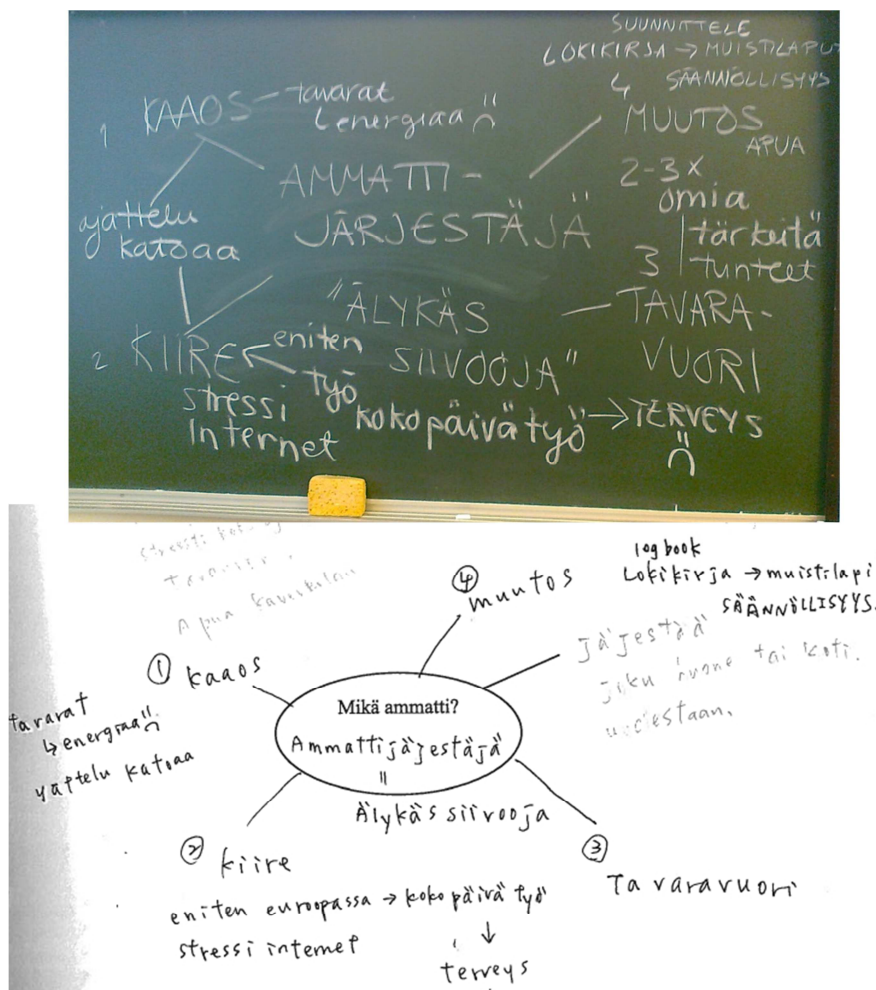 SUUNNITTELE
LOKIKIRJA → MUISTILAPUT
↳ SÄÄNNÖLLISYYS
1 KAAOS - tavarat
↳ energiaa
MUUTOS
APUA
AMMATTI-
JÄRJESTÄJÄ
2-3x
omia
tärkeitä
3 tunteet
ajattelu
katoaa
"ÄLYKÄS
SIIVOOJA"
TAVARA-
VUORI
2 KIIRE ← eniten
työ
stressi
Internet
kokopäivätyö → TERVEYS
stressi
Apua
logbook
Lokikirja → muistilapi
SÄÄNNÖLLISYYS.
④ muutos
① kaaos
jäjestää
joku huone tai koti.
uudestaan.
tavarat
↳ energiaa
yättelu katoaa
Mikä ammatti?
Ammattijäjestäjä
=
Älykäs siivooja
② kiire
eniten euroopassa → koko päivä työ
stressi internet
↓
terveys
③
Tavaravuori